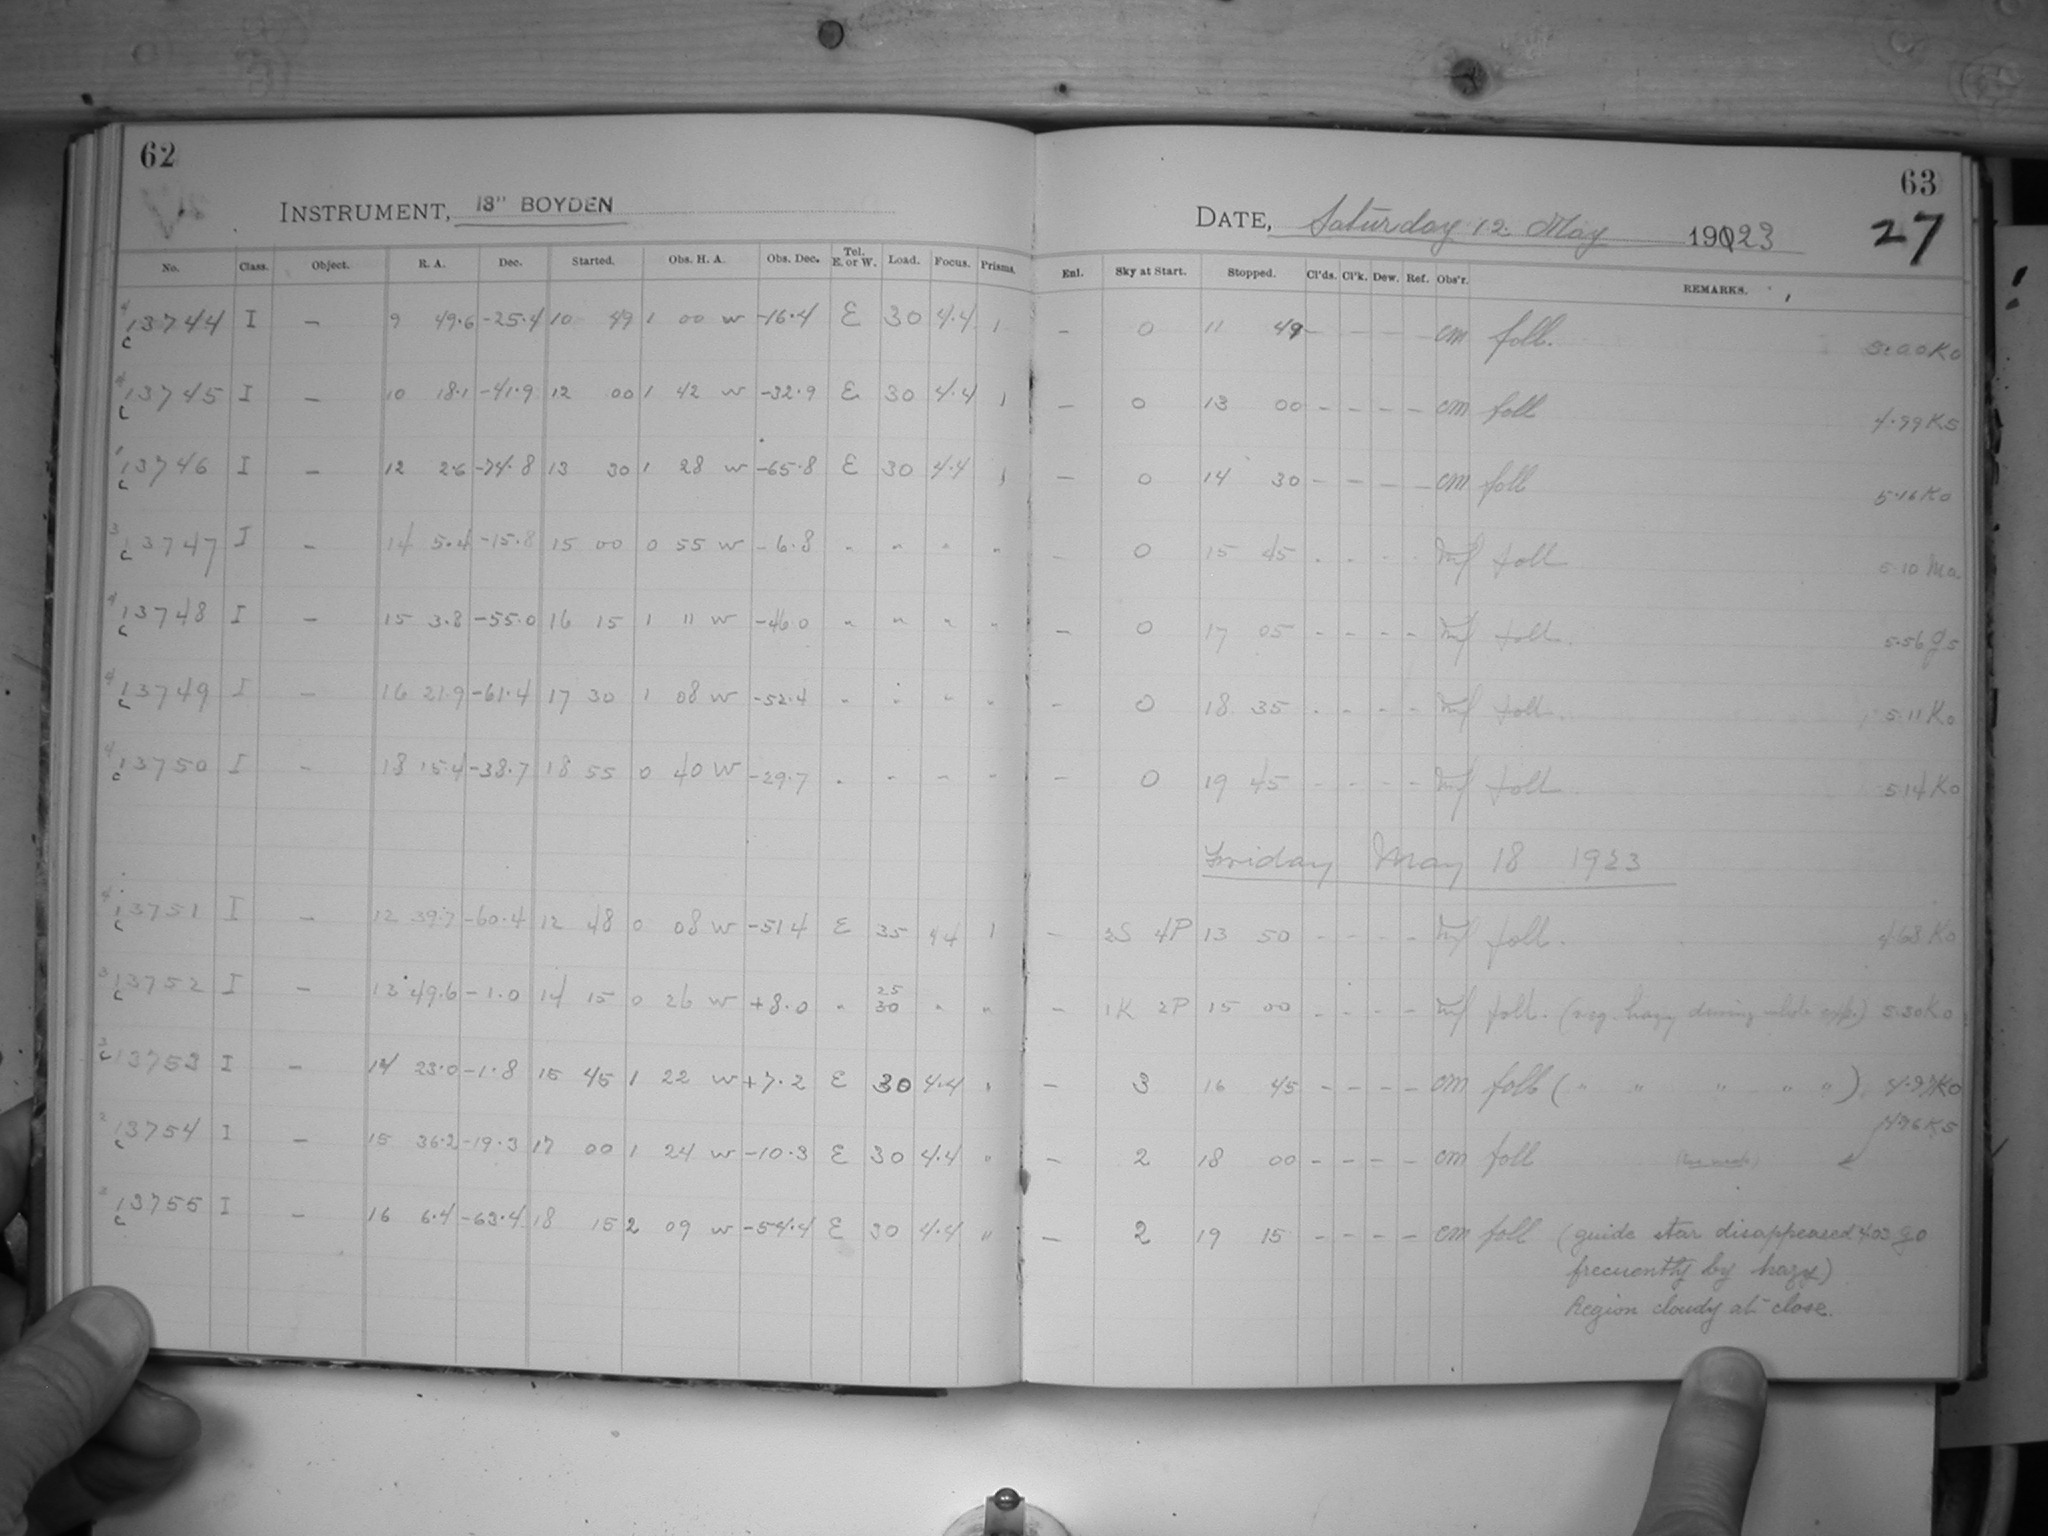 62
INSTRUMENT, 13" BOYDEN
No. Class. Object. R. A. Dec. Started. Obs. H. A. Obs. Dec. Tel. E. or W. Load. Focus. Prisms.
4 c 13744 I – 9 49.6 -25.4 10 49 1 00 w -16.4 E 30 4.4 1
4 c 13745 I – 10 18.1 -41.9 12 00 1 42 w -32.9 E 30 4.4 1
c 13746 I – 12 2.6 -74.8 13 30 1 28 w -65.8 E 30 4.4 1
3 c 13747 I – 14 5.4 -15.8 15 00 0 55 w -6.8 " " " "
4 c 13748 I – 15 3.8 -55.0 16 15 1 11 w -46.0 " " " "
4 c 13749 I – 16 21.9 -61.4 17 30 1 08 w -52.4 " " " "
4 c 13750 I – 18 15.4 -38.7 18 55 0 40 W -29.7 " " " "
4 c 13751 I – 12 39.7 -60.4 12 48 0 08 w -51.4 E 35 4.4 1
3 c 13752 I – 13 49.6 -1.0 14 15 0 26 w +8.0 " 25 30 " "
3 c 13753 I – 14 23.0 -1.8 15 45 1 22 w +7.2 E 30 4.4 "
2 c 13754 I – 15 36.2 -19.3 17 00 1 24 w -10.3 E 30 4.4 "
2 c 13755 I – 16 6.4 -63.4 18 15 2 09 w -54.4 E 30 4.4 "
63
27
DATE, Saturday 12 May 1923
Enl. Sky at Start. Stopped. Cl'ds. Cl'k. Dew. Ref. Obs'r. REMARKS.
– 0 11 49 – – – – cm foll. 5.00 K0
– 0 13 00 – – – – cm foll 4.99 K5
– 0 14 30 – – – – cm foll 5.16 K0
– 0 15 45 – – – – foll 5.10 Ma
– 0 17 05 – – – – foll. 5.56 G5
– 0 18 35 – – – – foll. 5.11 K0
– 0 19 45 – – – – foll 5.14 K0
Friday May 18 1923
– 2S 4P 13 50 – – – – foll. 4.68 K0
– 1K 2P 15 00 – – – – foll. (reg. hazy during whole exp.) 5.30 K0
– 3 16 45 – – – – cm foll ( " " " " " ) K0
4.76 K5
– 2 18 00 – – – – cm foll
– 2 19 15 – – – – cm foll (guide star disappeased 4.03 G0
frecuently by hazy)
Region cloudy at close.